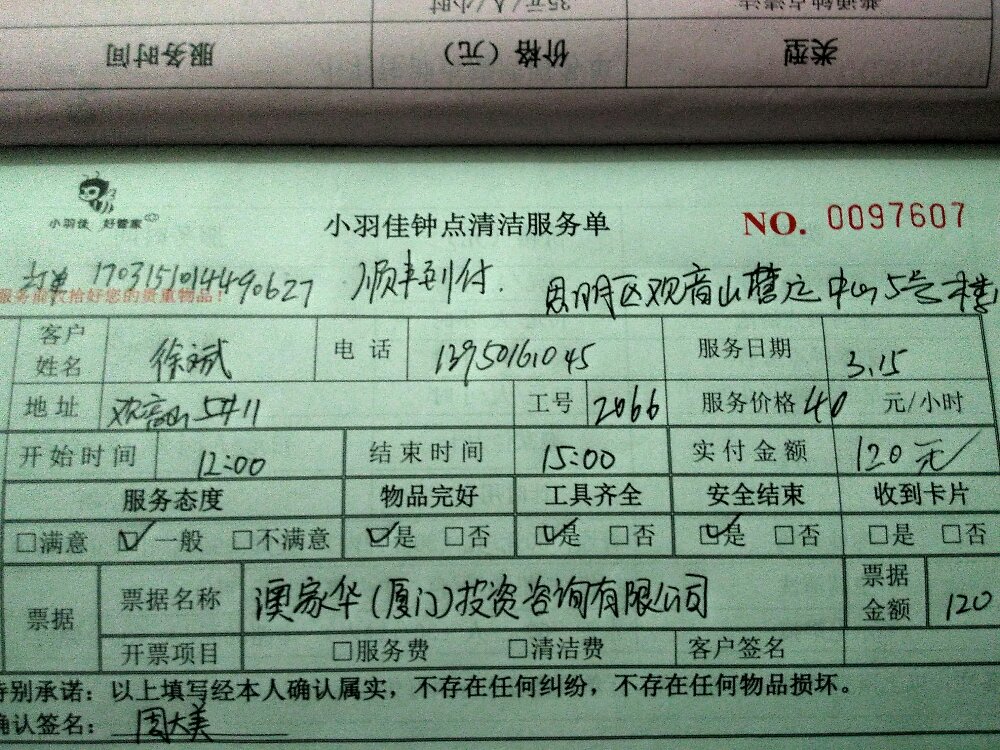 普通钟点清洁 35元/人/小时
类型 价格（元） 服务时间
小羽佳 好管家
小羽佳钟点清洁服务单 NO. 0097607
订单 1703151014490627 顺丰到付.
思明区观音山营运中心5号楼
服务前收拾好您的贵重物品！
客户姓名 徐斌 电话 13950161045 服务日期 3.15
地址 观音山5#11 工号 2066 服务价格 40 元/小时
开始时间 12:00 结束时间 15:00 实付金额 120元
服务态度 物品完好 工具齐全 安全结束 收到卡片
□满意 ☑一般 □不满意 ☑是 □否 ☑是 □否 ☑是 □否 □是 □否
票据 票据名称 澳家华(厦门)投资咨询有限公司 票据金额 120
开票项目 □服务费 □清洁费 客户签名
特别承诺：以上填写经本人确认属实，不存在任何纠纷，不存在任何物品损坏。
确认签名：周大美